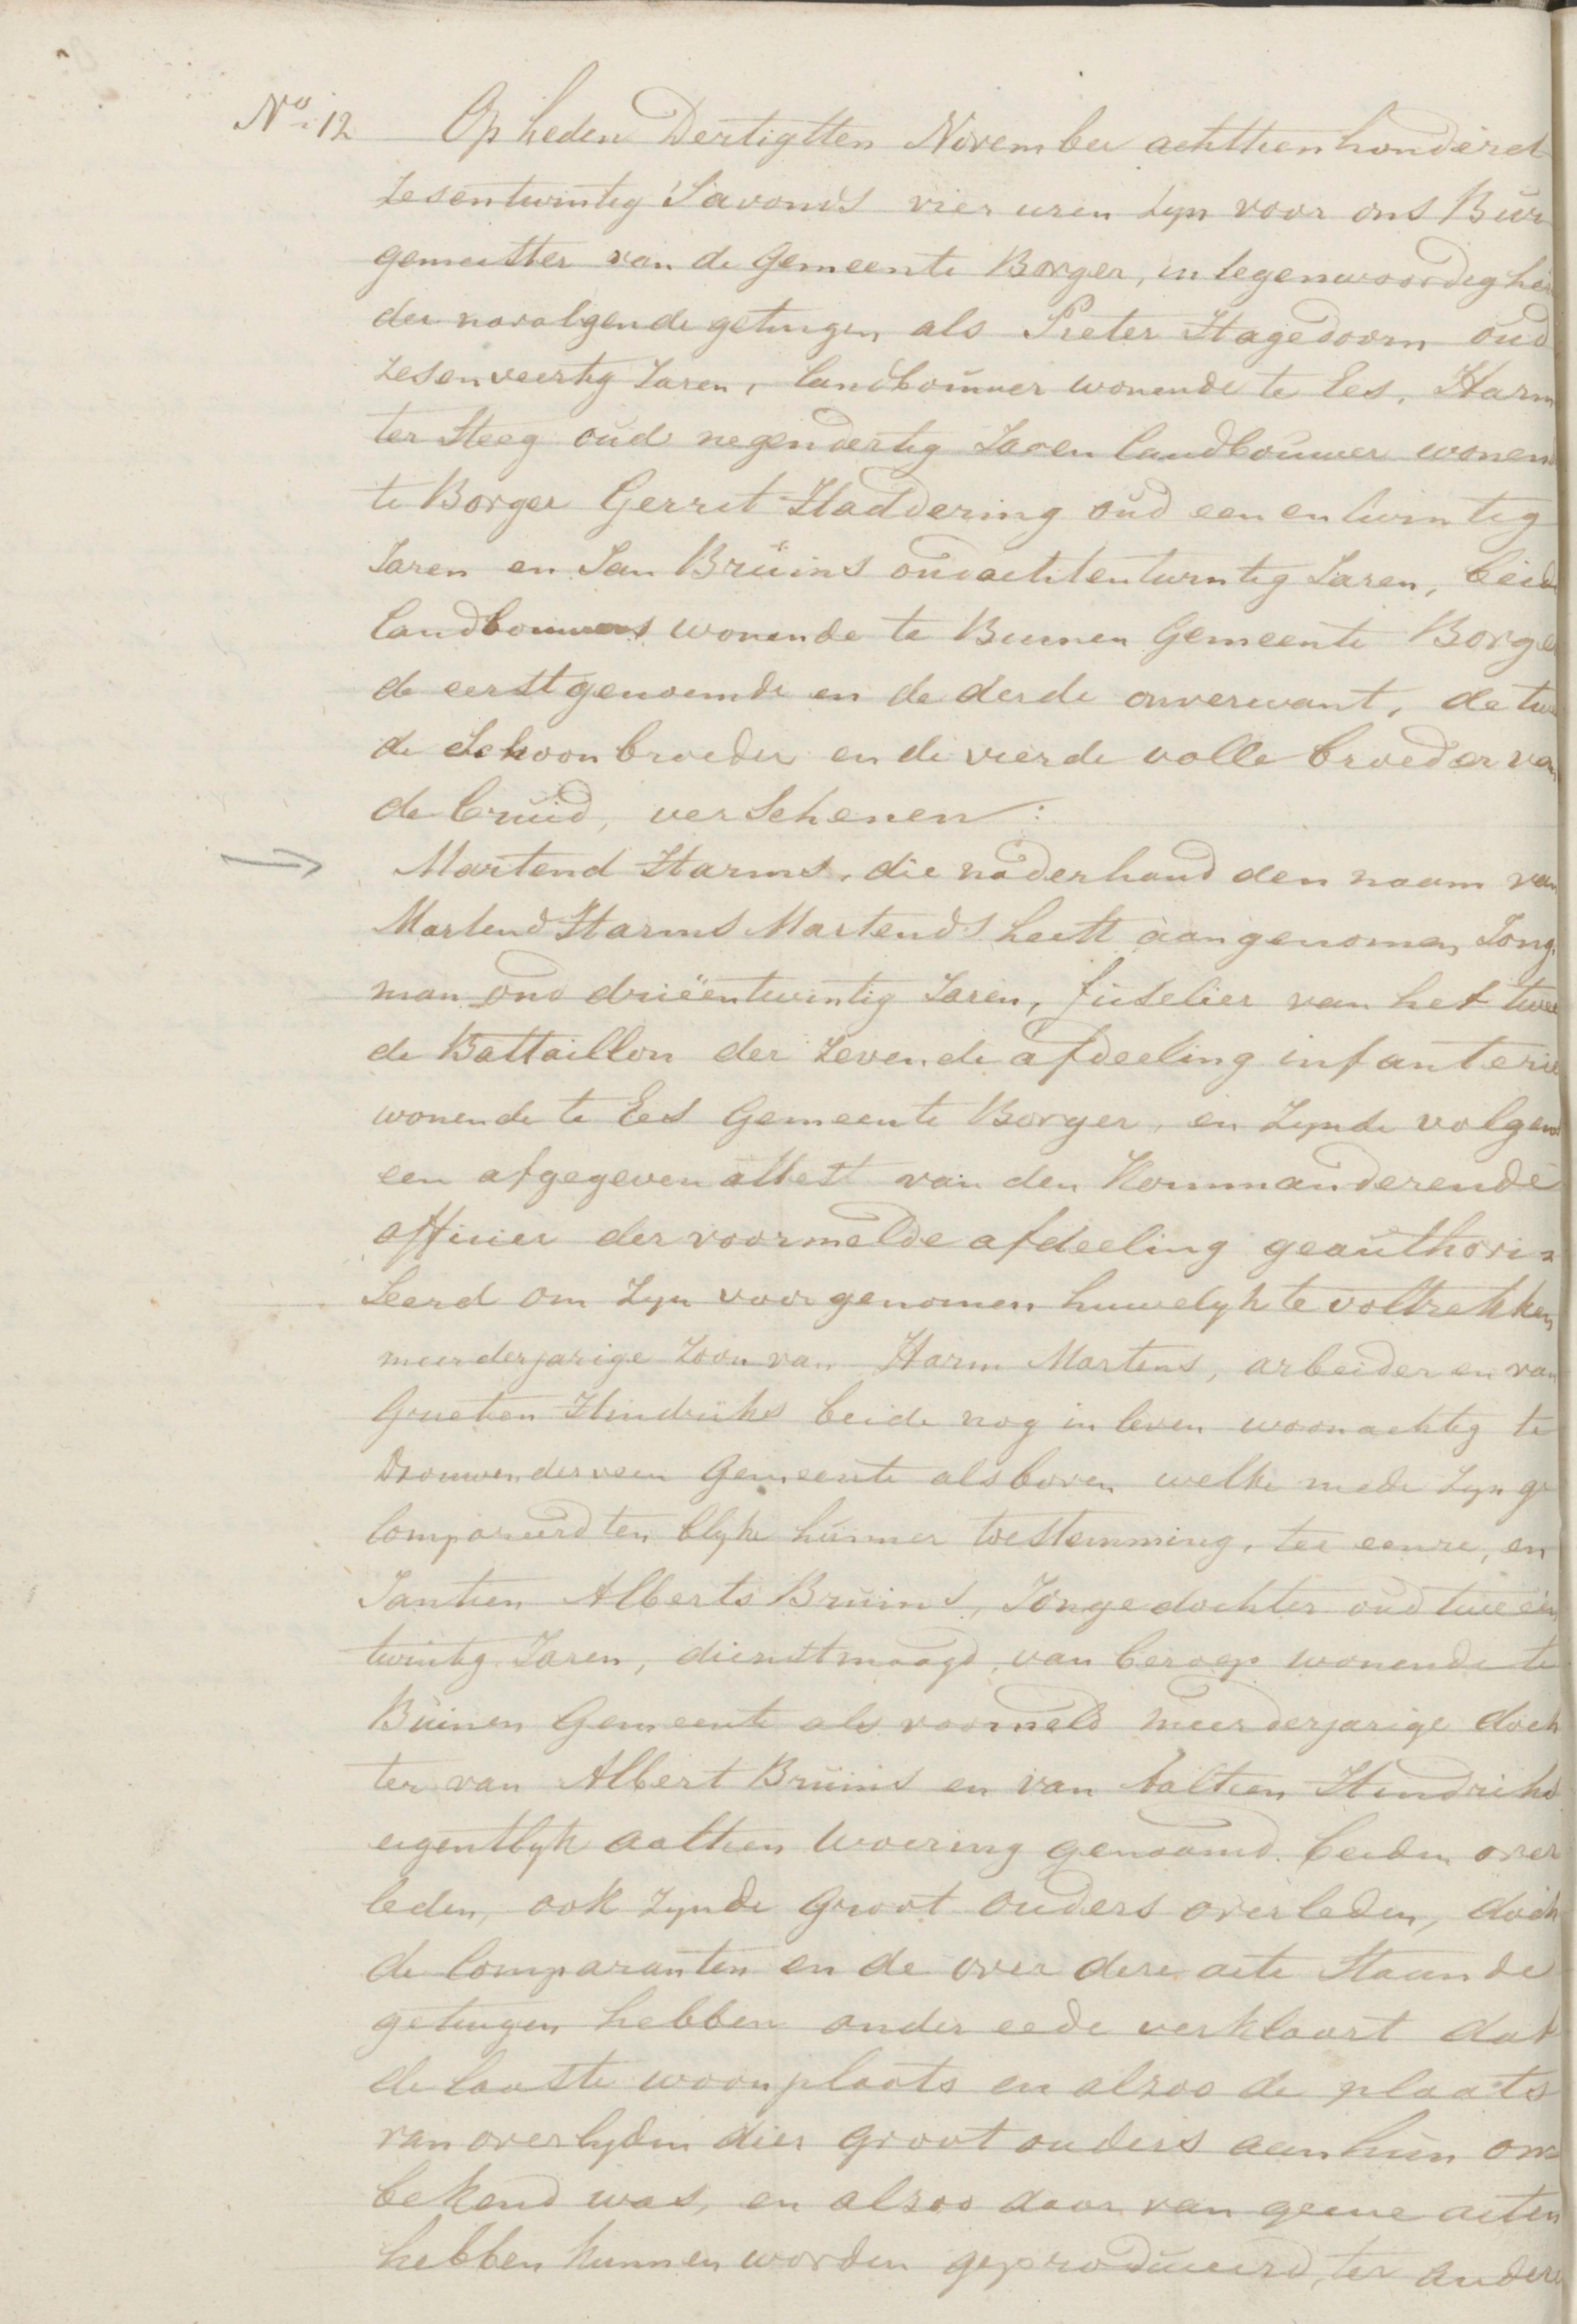 No. 12 Op heden Dertigsten November achttienhonderd
zesentwintig 'Savonds vier uren zyn voor ons Bur
gemeester van de Gemeente Borger, in tegenwoordighei
der navolgende getuigen als Pieter Hagedoorn oud
zesenveertig Jaren, landbouwer wonende te Ees, Harm
ter Steeg oud negendertig Jaren landbouwer wonen
te Borger Gerrit Haddering oud een en twintig
Jaren en Jan Bruins oud achtentwintig Jaren, beid
landbouwers wonende te Buinen Gemeente Borge
de eerstgenoemde en de derde onverwant, de twe
de Schoonbroeder en de vierde volle broeder van
de bruid, verschenen:
Martend Harms, die naderhand den naam van
Martend Harms Martends heeft aangenomen, Jong
man oud drieëntwintig Jaren, fuselier van het twee
de Battaillon der zevende afdeeling infanterie
wonende te Ees Gemeente Borger, en zynde volgend
een afgegeven attest van den Kommanderende
officier der voormelde afdeeling geauthori=
seerd om zyn voorgenomen huwelyk te voltrekken
meerderjarige zoon van Harm Martens, arbeider en van
Grietien Hindriks beide nog in leven woonachtig te
Drouwenderveen Gemeente als boven welke mede zyn ge
compareerd ten blyke hunner toestemming, ter eenre, en
Jantien Alberts Bruins, Jongedochter oud tweeën
twintig Jaren, dienstmaagd van beroep wonende te
Buinen Gemeente als voormeld meerderjarige doch
ter van Albert Bruins en van Aaltien Hindriks
eigentlyk Aaltien Woering genaamd beiden over
leden, ook zynde Groot ouders overleden, doch
de Comparanten en de over dese acte staande
getuigen hebben onder eede verklaart dat
de laaste woonplaats en alzoo de plaats
van overlyden dier groot ouders aan hun on=
bekend was, en alzoo daar van geene acten
hebben kunnen worden geproduceerd, ter andere